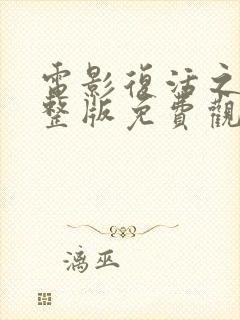 電影復活之
整版免費觀
漓巫